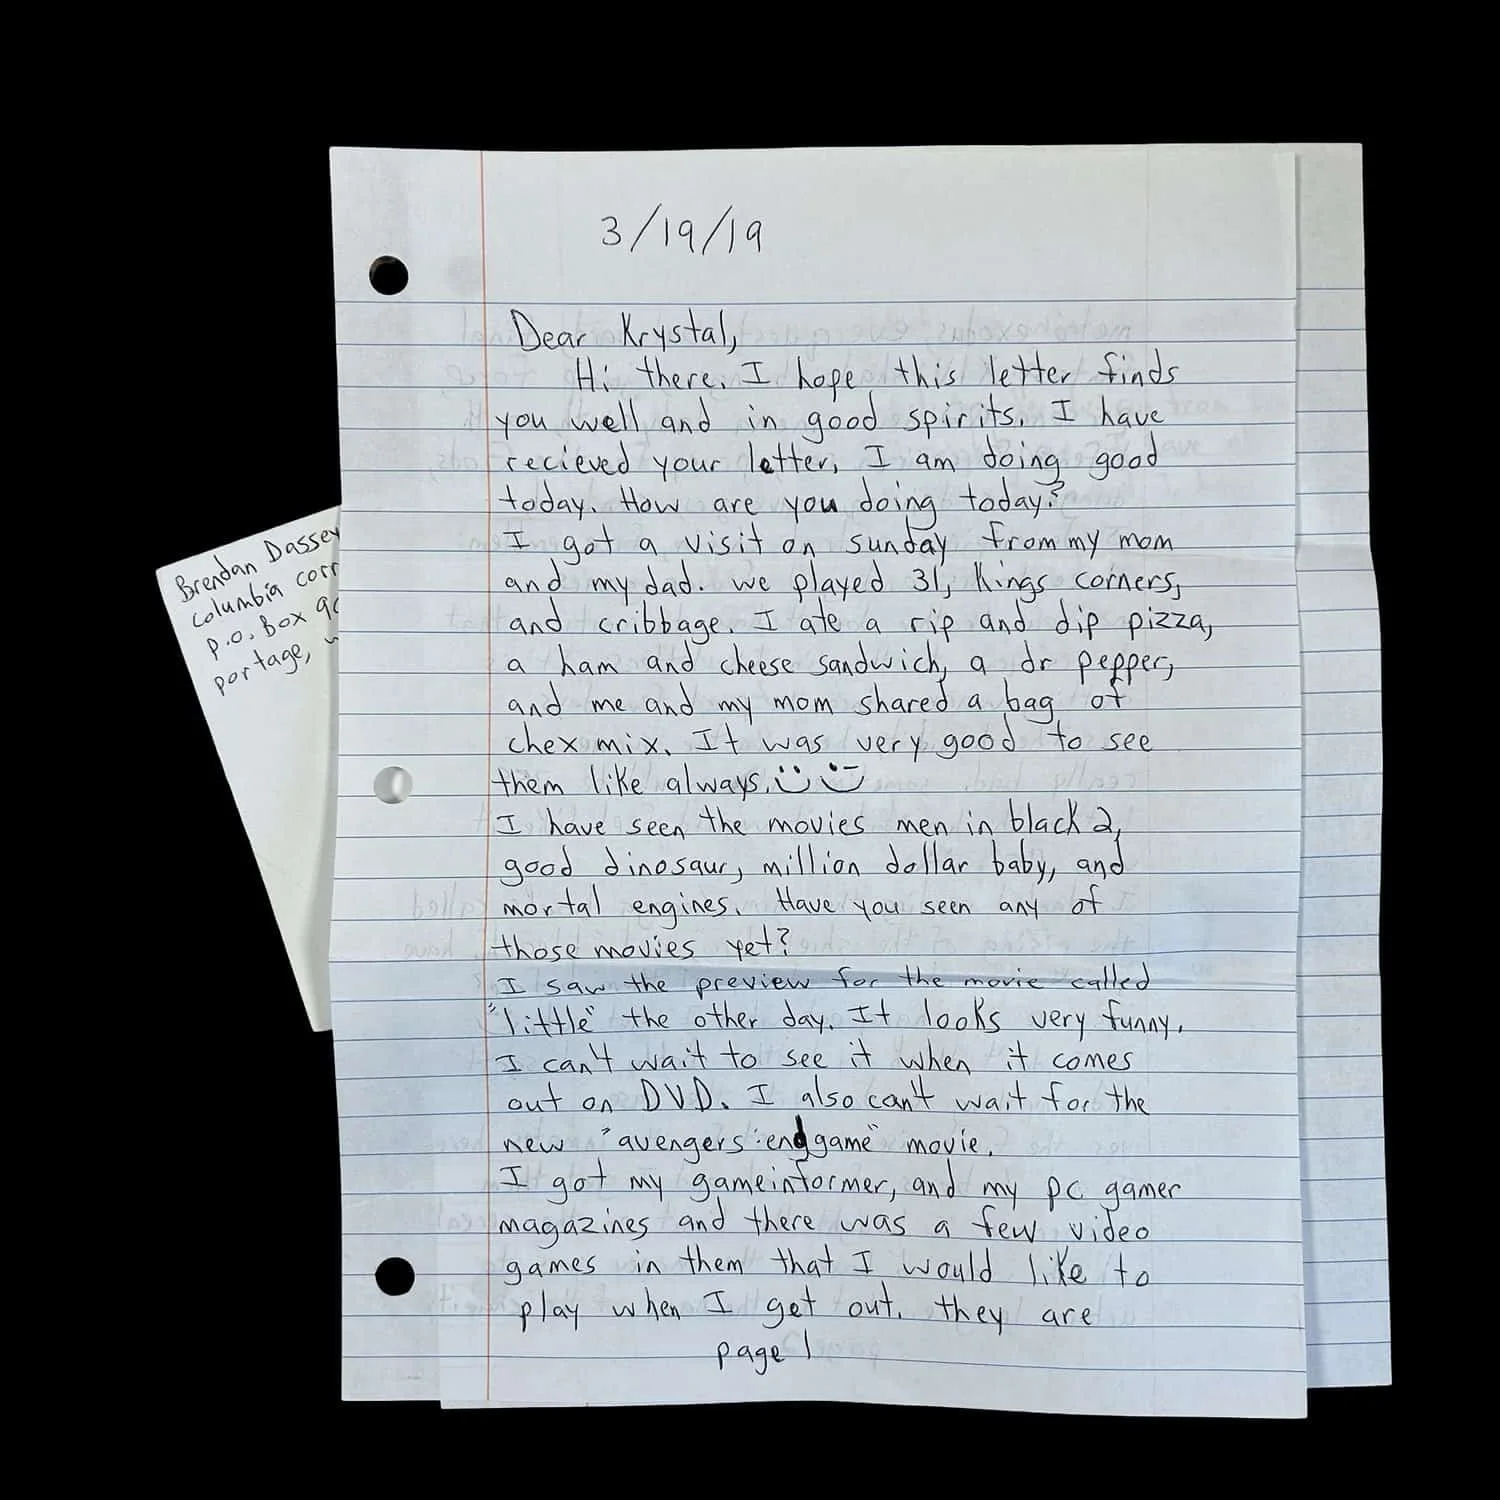 3/19/19
Dear Krystal,
Hi there. I hope this letter finds
you well and in good spirits. I have
recieved your letter. I am doing good
today. How are you doing today?
I got a visit on sunday from my mom
and my dad. we played 31, Kings corners,
and cribbage. I ate a rip and dip pizza,
a ham and cheese sandwich, a dr pepper,
and me and my mom shared a bag of
chex mix. It was very good to see
them like always.
I have seen the movies men in black 2,
good dinosaur, million dollar baby, and
mortal engines. Have you seen any of
those movies yet?
I saw the preview for the movie called
"little" the other day. It looks very funny.
I can't wait to see it when it comes
out on DVD. I also can't wait for the
new "avengers: endgame" movie.
I got my gameinformer, and my pc gamer
magazines and there was a few video
games in them that I would like to
play when I get out. they are
page 1
Brendan Dassey
columbia corr
p.o. Box
portage,